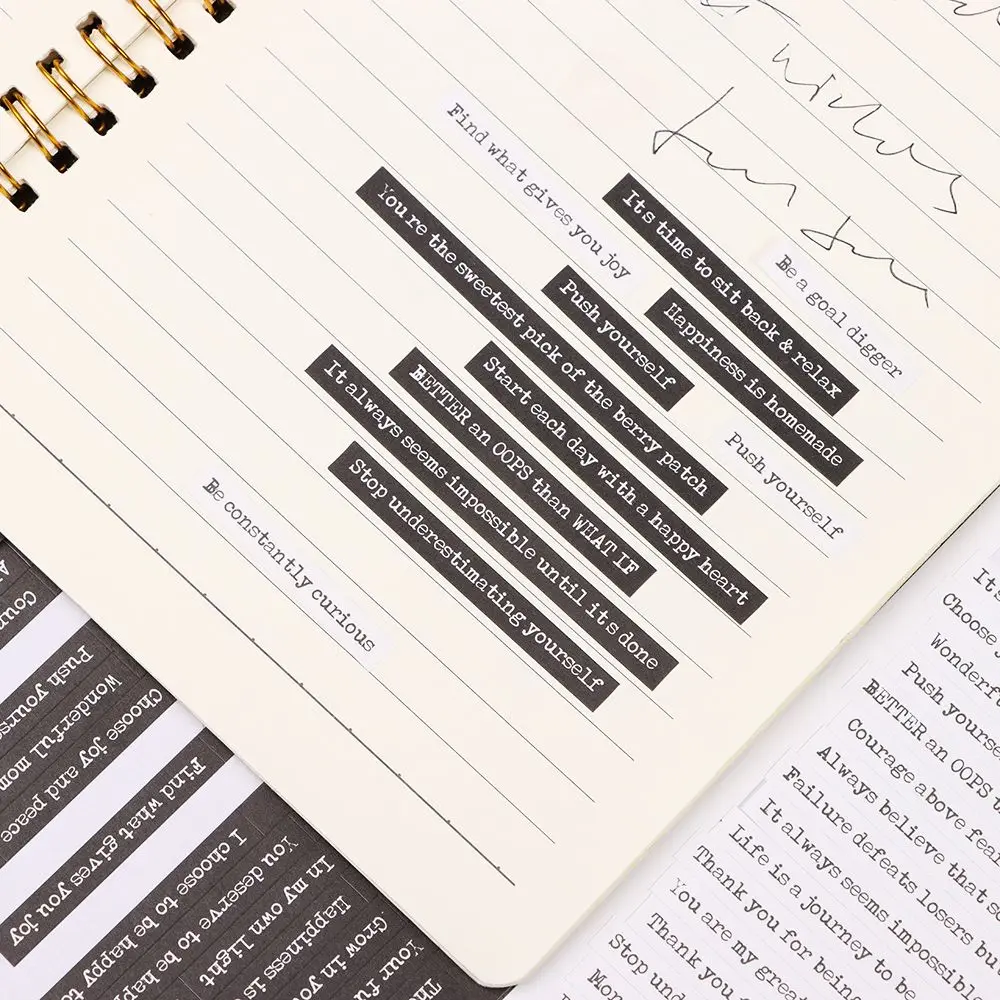 wishes
Find what gives you joy
It s time to sit back & relax
Be a goal digger
You re the sweetest pick of the berry patch
Push yourself
Happiness is homemade
Start each day with a happy heart
Push yourself
BETTER an OOPS than WHAT IF
It always seems impossible until it s done
Stop underestimating yourself
Be constantly curious
Push
Wonderful
Choose joy and peace
Find what gives you joy
I choose to be happy
You deserve to be happy
In my own light
Happiness is
Grow in
Your
Choose
Push
BETTER an OOPS
Courage above
Always believe that
Failure defeats losers but
It always seems
Life is a journey to be
Thank you for being
You are my
Thank you
Stop